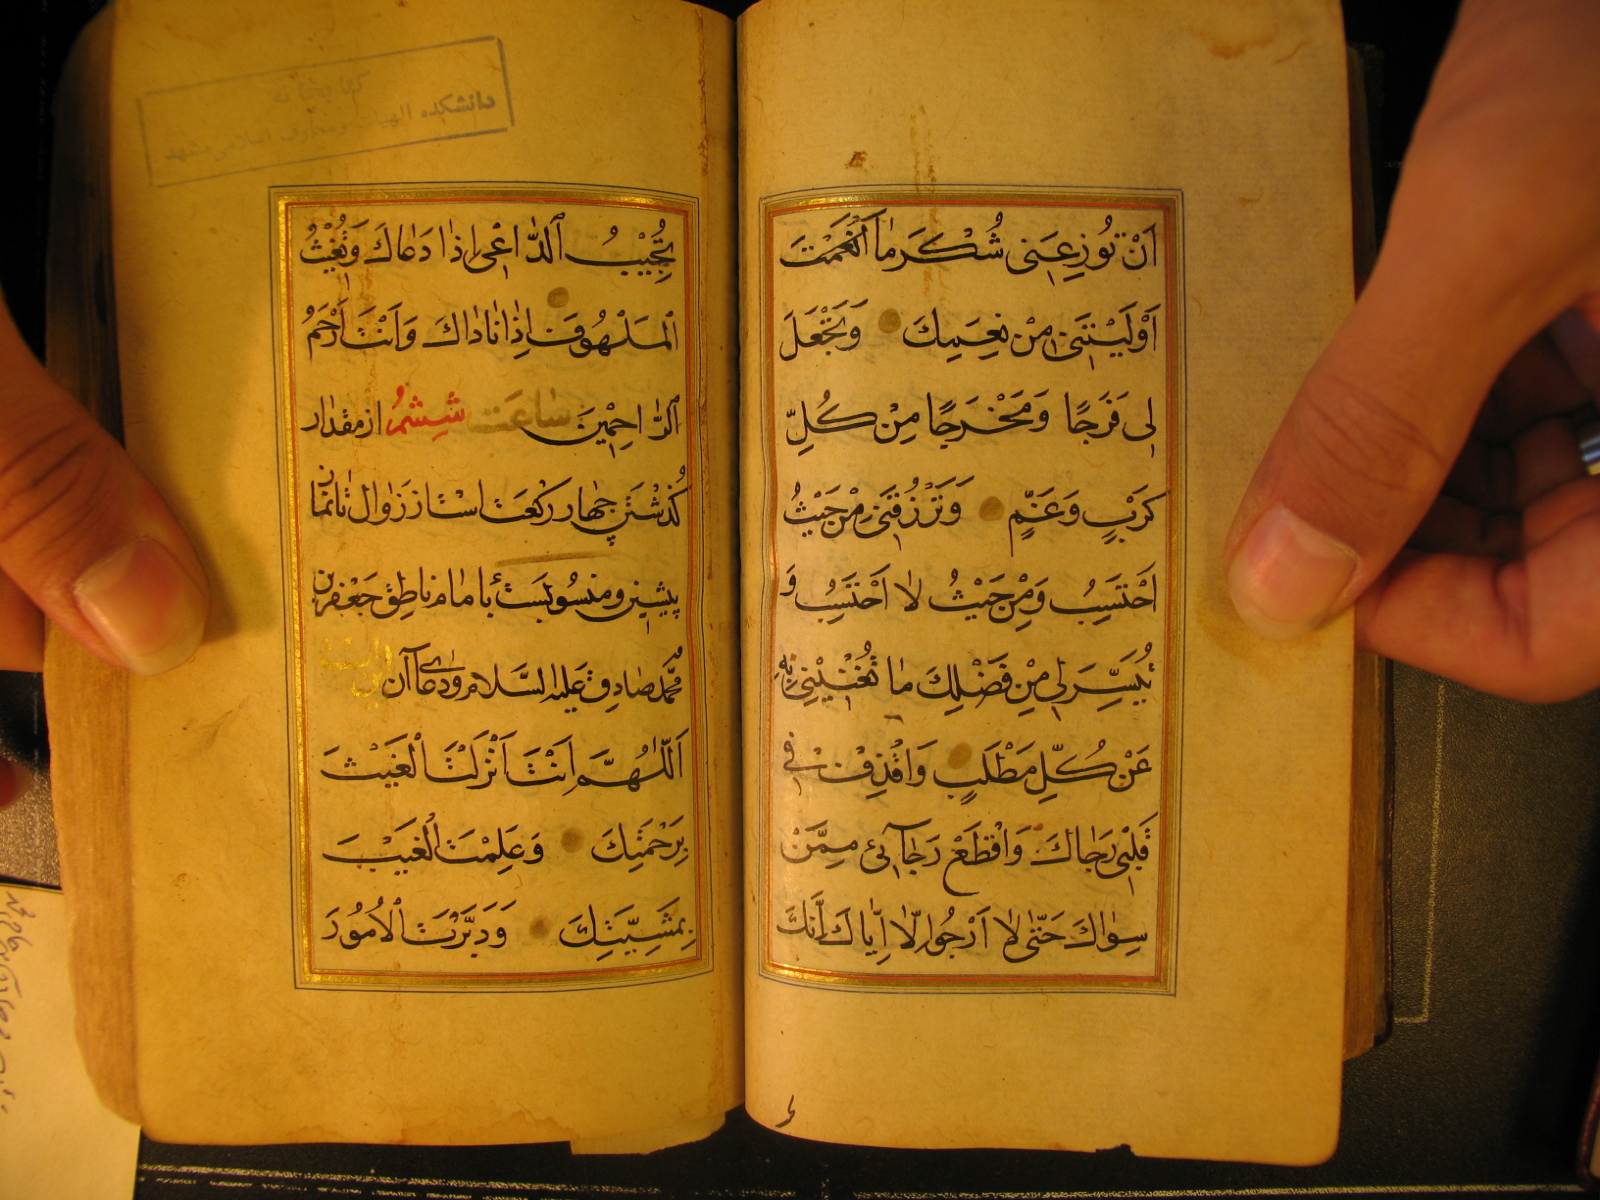 اَنْ تُوزِعَنِى شُكْرَ مٰا اَنْعَمْتَ
اَوْلَيْتَنِى مِنْ نِعَمِكَ وَتَجْعَلَ
لِى فَرَجًا وَمَخْرَجًا مِنْ كُلِّ
كَرْبٍ وَغَمٍّ وَتَرْزُقَنِى مِنْ حَيْثُ
اَحْتَسِبُ وَمِنْ حَيْثُ لٰا اَحْتَسِبُ وَ
تُيَسِّرَ لِى مِنْ فَضْلِكَ مٰا تُغْنِيْنِى بِهِ
عَنْ كُلِّ مَطْلَبٍ وَاقْذِفْ فِى
قَلْبِى رَجٰاكَ وَاقْطَعْ رَجٰآئِى مِمَّنْ
سِوٰاكَ حَتّٰى لٰا اَرْجُوا اِلّٰا اِيّٰاكَ اِنَّكَ
كتابخانه
دانشكده الهيات ومعارف اسلامى مشهد
تُجِيْبُ ٱلدّٰاعِى اِذٰا دَعٰاكَ وَتُغِيْثُ
ٱلْمَلْهُوفَ اِذٰا نٰادٰاكَ وَاَنْتَ اَرْحَمُ
ٱلرّٰاحِمِيْنَ سٰاعَت شِشُم از مقدٰار
كُذشْتَن چهٰار ركْعَت اسْت از زَوٰال تٰا نمَان
پيشِين ومنسُوبَسْت بٰامٰام ناطِق جَعْفَر بن
مُحَمَّد صٰادِق عَلَيْهِ السَّلٰام ودُعٰاى آن
اَللّٰهُمَّ اَنْتَ اَنْزَلْتَ ٱلْغَيْثَ
بِرَحْمَتِكَ وَعَلِمْتَ ٱلْغَيْبَ
بِمَشِيَّتِكَ وَدَبَّرْتَ ٱلْاُمُورَ